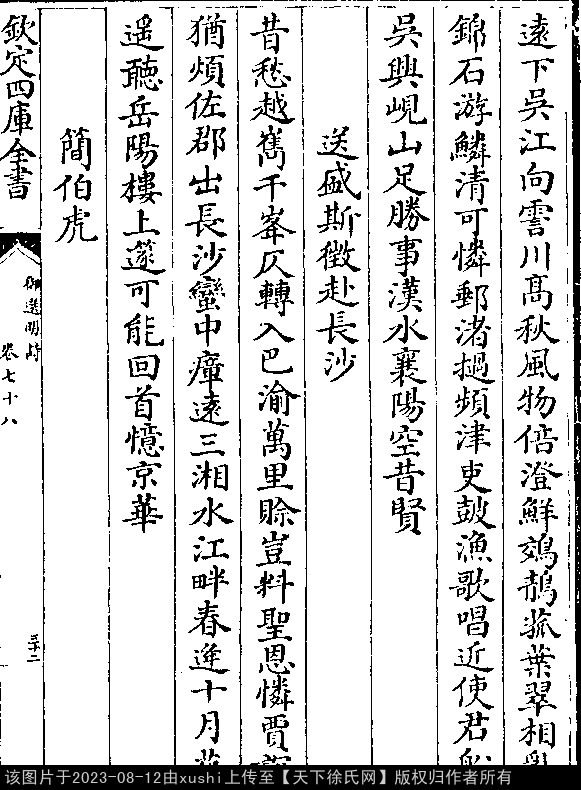 遠下吳江向霅川高秋風物倍澄鮮鵁鶄菰葉翠相亂
錦石游鱗清可憐郵渚撾頻津吏鼓漁歌唱近使君船
吳興峴山足勝事漢水襄陽空昔賢
送盛斯徵赴長沙
昔愁越嶲千峯仄轉入巴渝萬里賒豈料聖恩憐賈
猶煩佐郡出長沙蠻中瘴遠三湘水江畔春逢十月
遥聽岳陽樓上邃可能回首憶京華
簡伯虎
欽定四庫全書
御選明詩
卷七十八
三十二
该图片于2023-08-12由xushi上传至【天下徐氏网】版权归作者所有